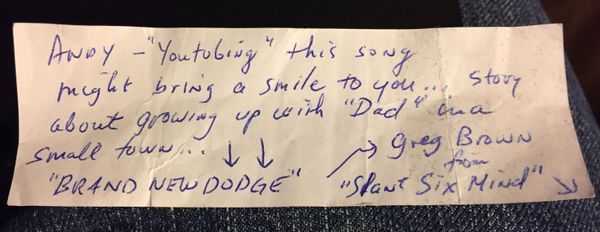 ANDY - "Youtubing" this song
might bring a smile to you... Story
about growing up with "Dad" in a
small town... ↓ ↓ ↗ Greg Brown
from
"BRAND NEW DODGE" "Slant Six Mind" ↘